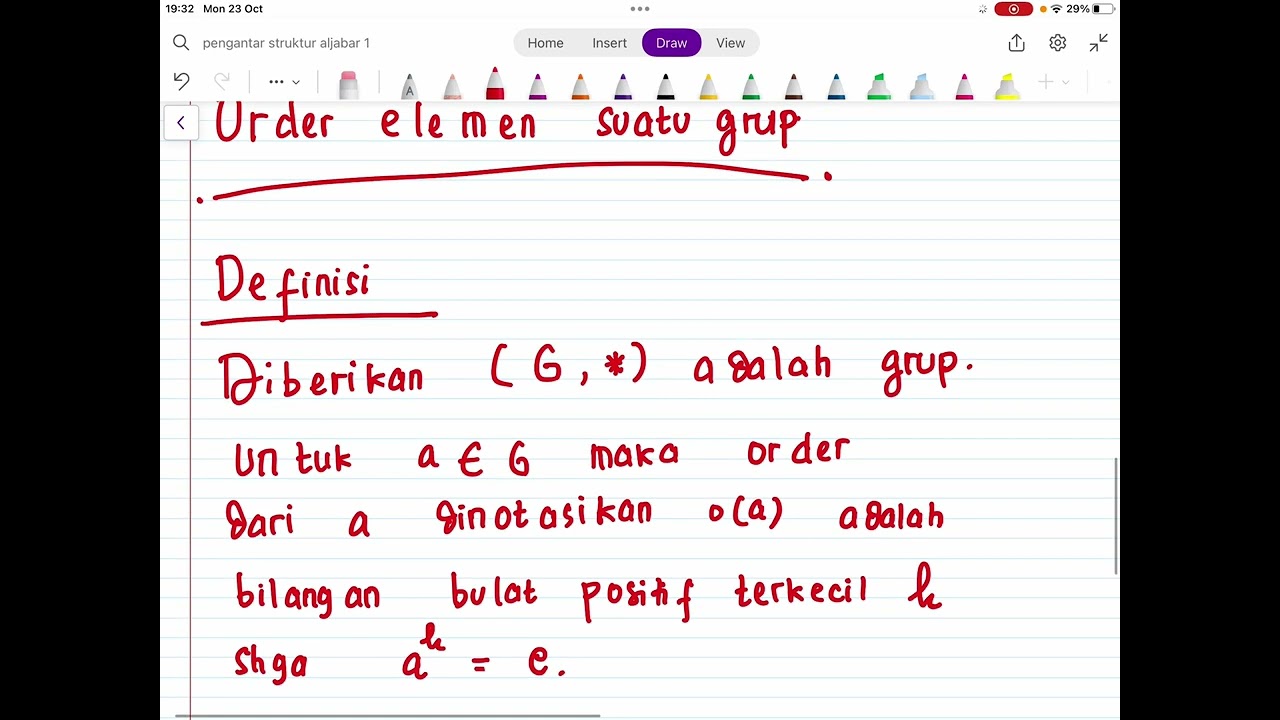 19:32 Mon 23 Oct
29%
pengantar struktur aljabar 1
Home Insert Draw View
A
Order elemen suatu grup
Definisi
Diberikan (G, *) adalah grup.
Untuk a ∈ G maka order
dari a dinotasikan o(a) adalah
bilangan bulat positif terkecil k
shga a^k = e.